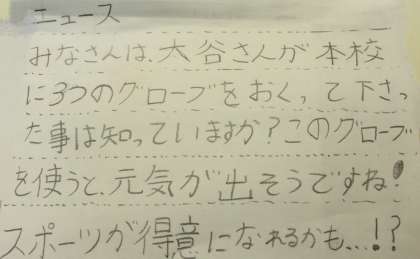 ニュース
みなさんは、大谷さんが本校
に3つのグローブをおくって下さっ
た事は知っていますか？このグローブ
を使うと、元気が出そうですね!
スポーツが得意になれるかも…!?